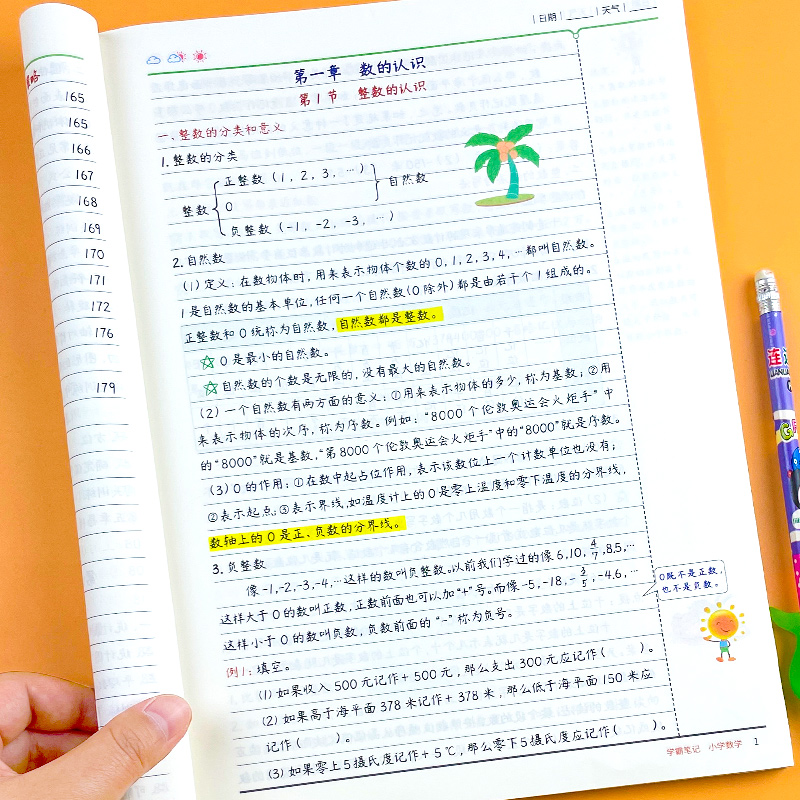 165
165
166
167
168
169
170
171
172
176
179
日期 天气
第一章 数的认识
第1节 整数的认识
一、整数的分类和意义
1.整数的分类
整数
正整数(1,2,3,…)
0
负整数(-1,-2,-3,…)
自然数
2.自然数
(1)定义:在数物体时,用来表示物体个数的0,1,2,3,4,…都叫自然数。
1是自然数的基本单位,任何一个自然数(0除外)都是由若干个1组成的。
正整数和0统称为自然数,自然数都是整数。
☆0是最小的自然数。
☆自然数的个数是无限的,没有最大的自然数。
(2)一个自然数有两方面的意义:①用来表示物体的多少,称为基数;②用
来表示物体的次序,称为序数。例如:“8000个伦敦奥运会火炬手”中
的“8000”就是基数,“第8000个伦敦奥运会火炬手”中的“8000”就是序数。
(3)0的作用:①在数中起占位作用,表示该数位上一个计数单位也没有;
②表示起点;③表示界线,如温度计上的0是零上温度和零下温度的分界线,
数轴上的0是正、负数的分界线。
3.负整数
像-1,-2,-3,-4,…这样的数叫负整数。以前我们学过的像6,10,4/7,8.5,…
这样大于0的数叫正数,正数前面也可以加“+”号。而像-5,-18,-3/5,-4.6,…
这样小于0的数叫负数,负数前面的“-”称为负号。
0既不是正数,
也不是负数。
例1:填空。
(1)如果收入500元记作+500元,那么支出300元应记作( )。
(2)如果高于海平面378米记作+378米,那么低于海平面150米应
记作( )。
(3)如果零上5摄氏度记作+5℃,那么零下5摄氏度应记作( )。
学霸笔记 小学数学 1